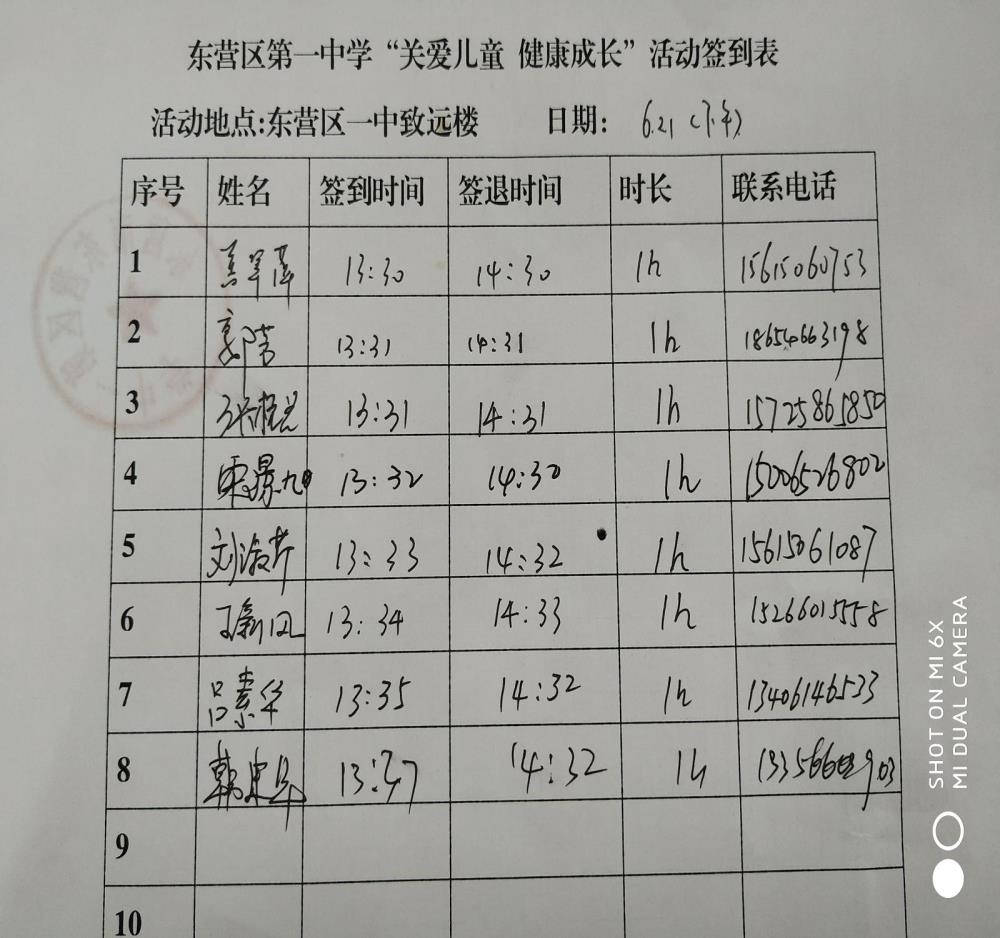 东营区第一中学“关爱儿童 健康成长”活动签到表
活动地点:东营区一中致远楼 日期: 6.21 (下午)
序号 姓名 签到时间 签退时间 时长 联系电话
1 13:30 14:30 1h 15615060753
2 郭芳 13:31 14:31 1h 18654663198
3 13:31 14:31 1h 15725865850
4 13:32 14:30 1h 15006526802
5 刘淑芹 13:33 14:32 1h 15615061087
6 王新凤 13:34 14:33 1h 15266015558
7 吕素华 13:35 14:32 1h 13406146533
8 13:37 14:32 1h
9
10
SHOT ON MI 6X
MI DUAL CAMERA